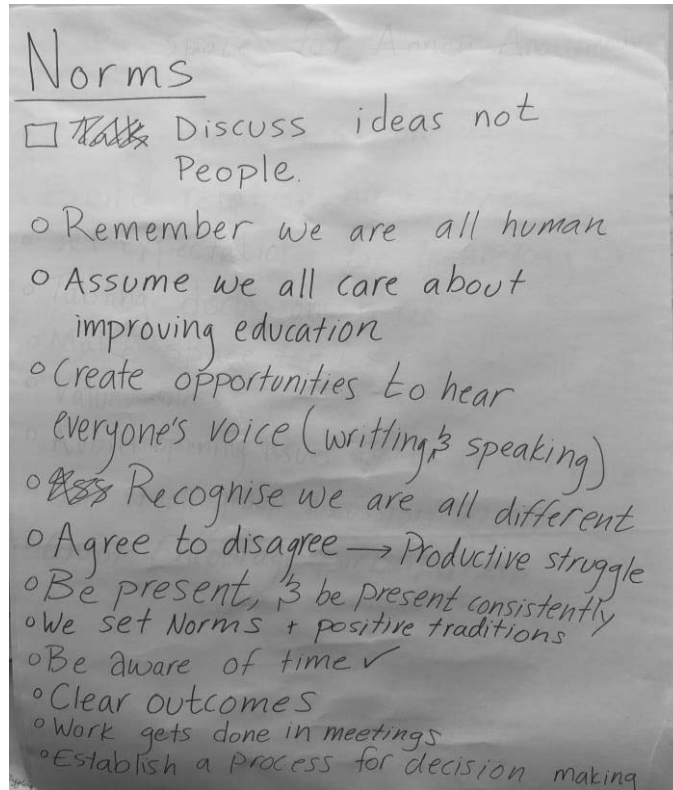 Norms
□ Discuss ideas not
People.
○ Remember we are all human
○ Assume we all care about
improving education
○ Create opportunities to hear
everyone's voice (writting, & speaking)
○ Recognise we are all different
○ Agree to disagree → Productive struggle
○ Be present, & be present consistently
○ We set Norms + positive traditions
○ Be aware of time ✓
○ Clear outcomes
○ Work gets done in meetings
○ Establish a process for decision making